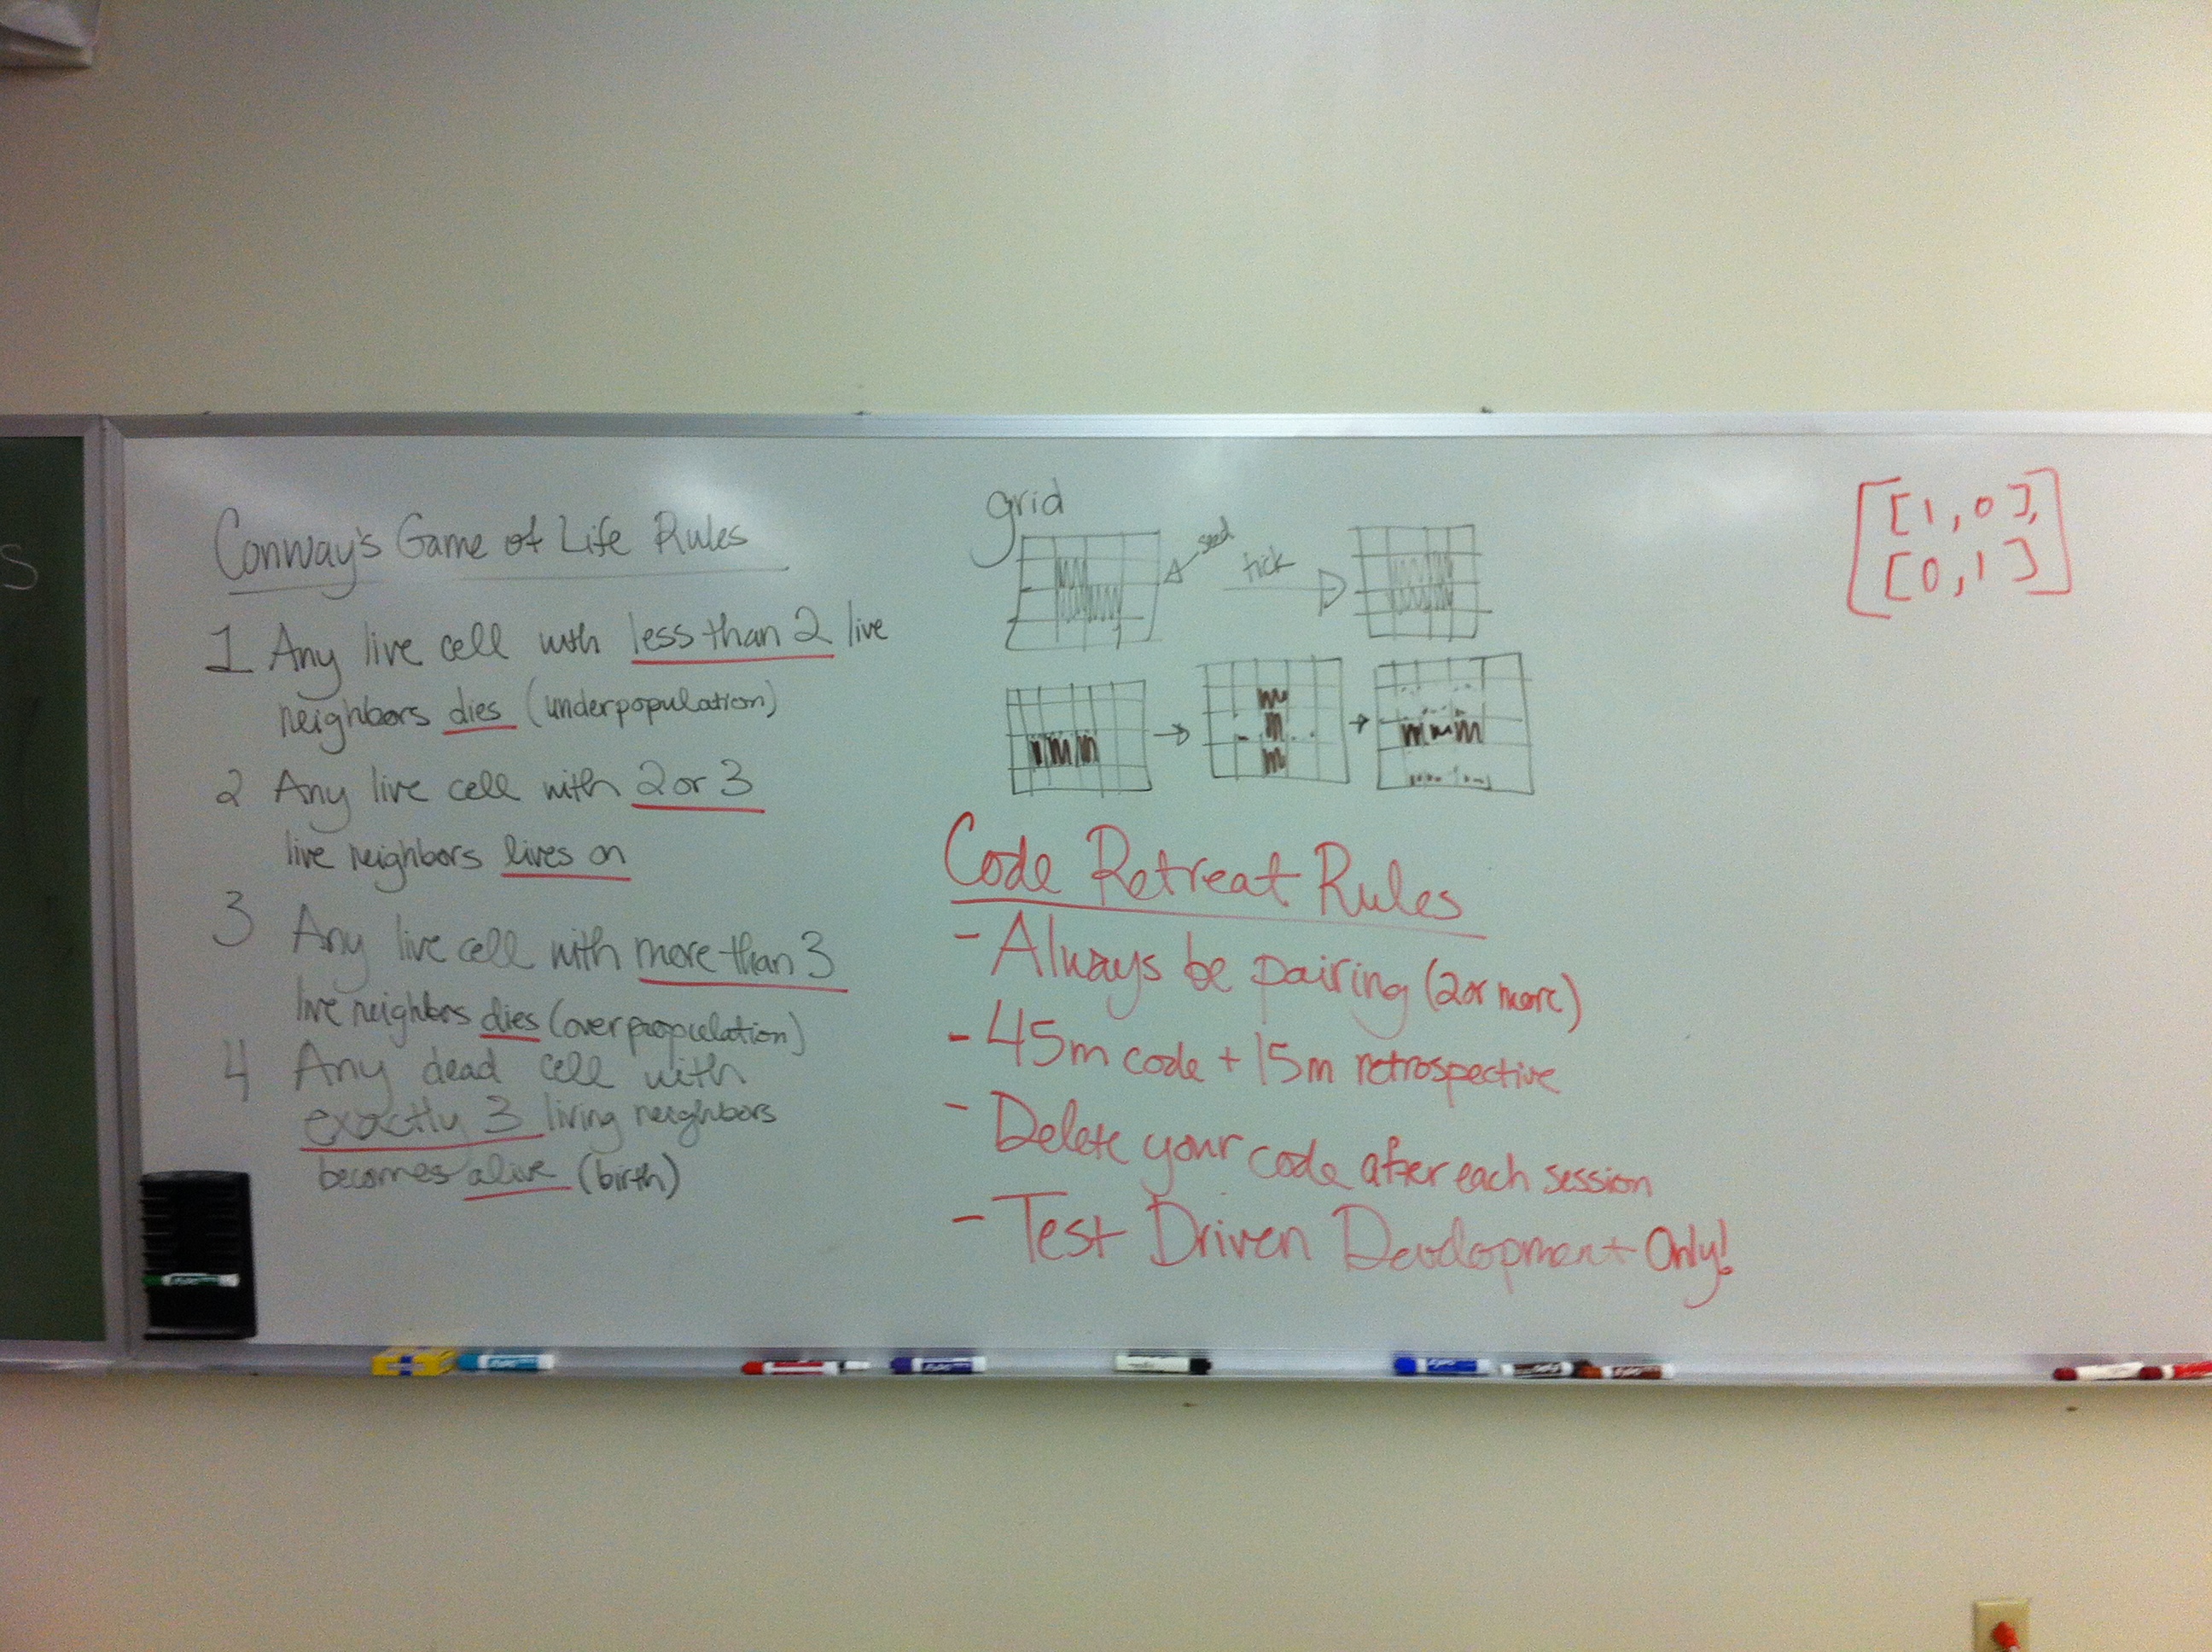 S
Conway's Game of Life Rules
1 Any live cell with less than 2 live
neighbors dies (underpopulation)
2 Any live cell with 2 or 3
live neighbors lives on
3 Any live cell with more than 3
live neighbors dies (over propulation)
4 Any dead cell with
exactly 3 living neighbors
becomes alive (birth)
grid
seed
tick
Code Retreat Rules
- Always be pairing (2 or more)
- 45m code + 15m retrospective
- Delete your code after each session
- Test Driven Development Only!
[[1,0],
[0,1]]